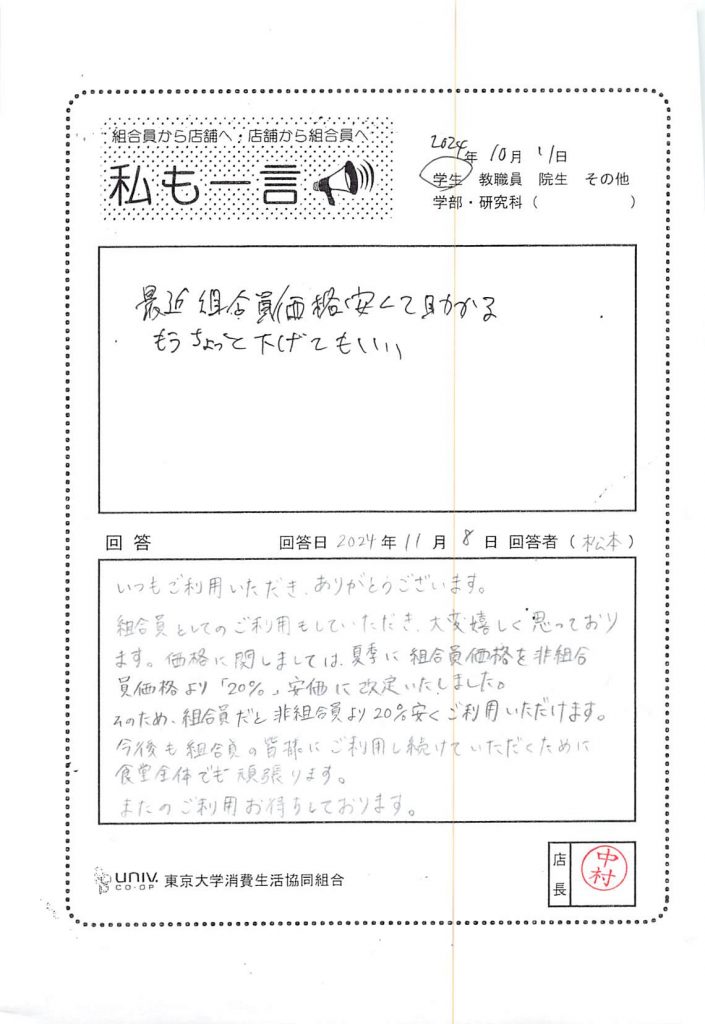 組合員から店舗へ・店舗から組合員へ
私も一言
2024年 10月 11日
学生 教職員 院生 その他
学部・研究科（ ）
最近 組合員価格安くて助かる
もうちょっと下げてもいい
回答 回答日 2024年 11月 8日 回答者（松本）
いつもご利用いただき、ありがとうございます。
組合員としてのご利用もしていただき、大変嬉しく思っており
ます。価格に関しましては、夏季に組合員価格を非組合
員価格より「20%」安価に改定いたしました。
そのため、組合員だと非組合員より20%安くご利用いただけます。
今後も組合員の皆様にご利用し続けていただくために
食堂全体でも頑張ります。
またのご利用お待ちしております。
UNIV. CO-OP 東京大学消費生活協同組合
店長 中村